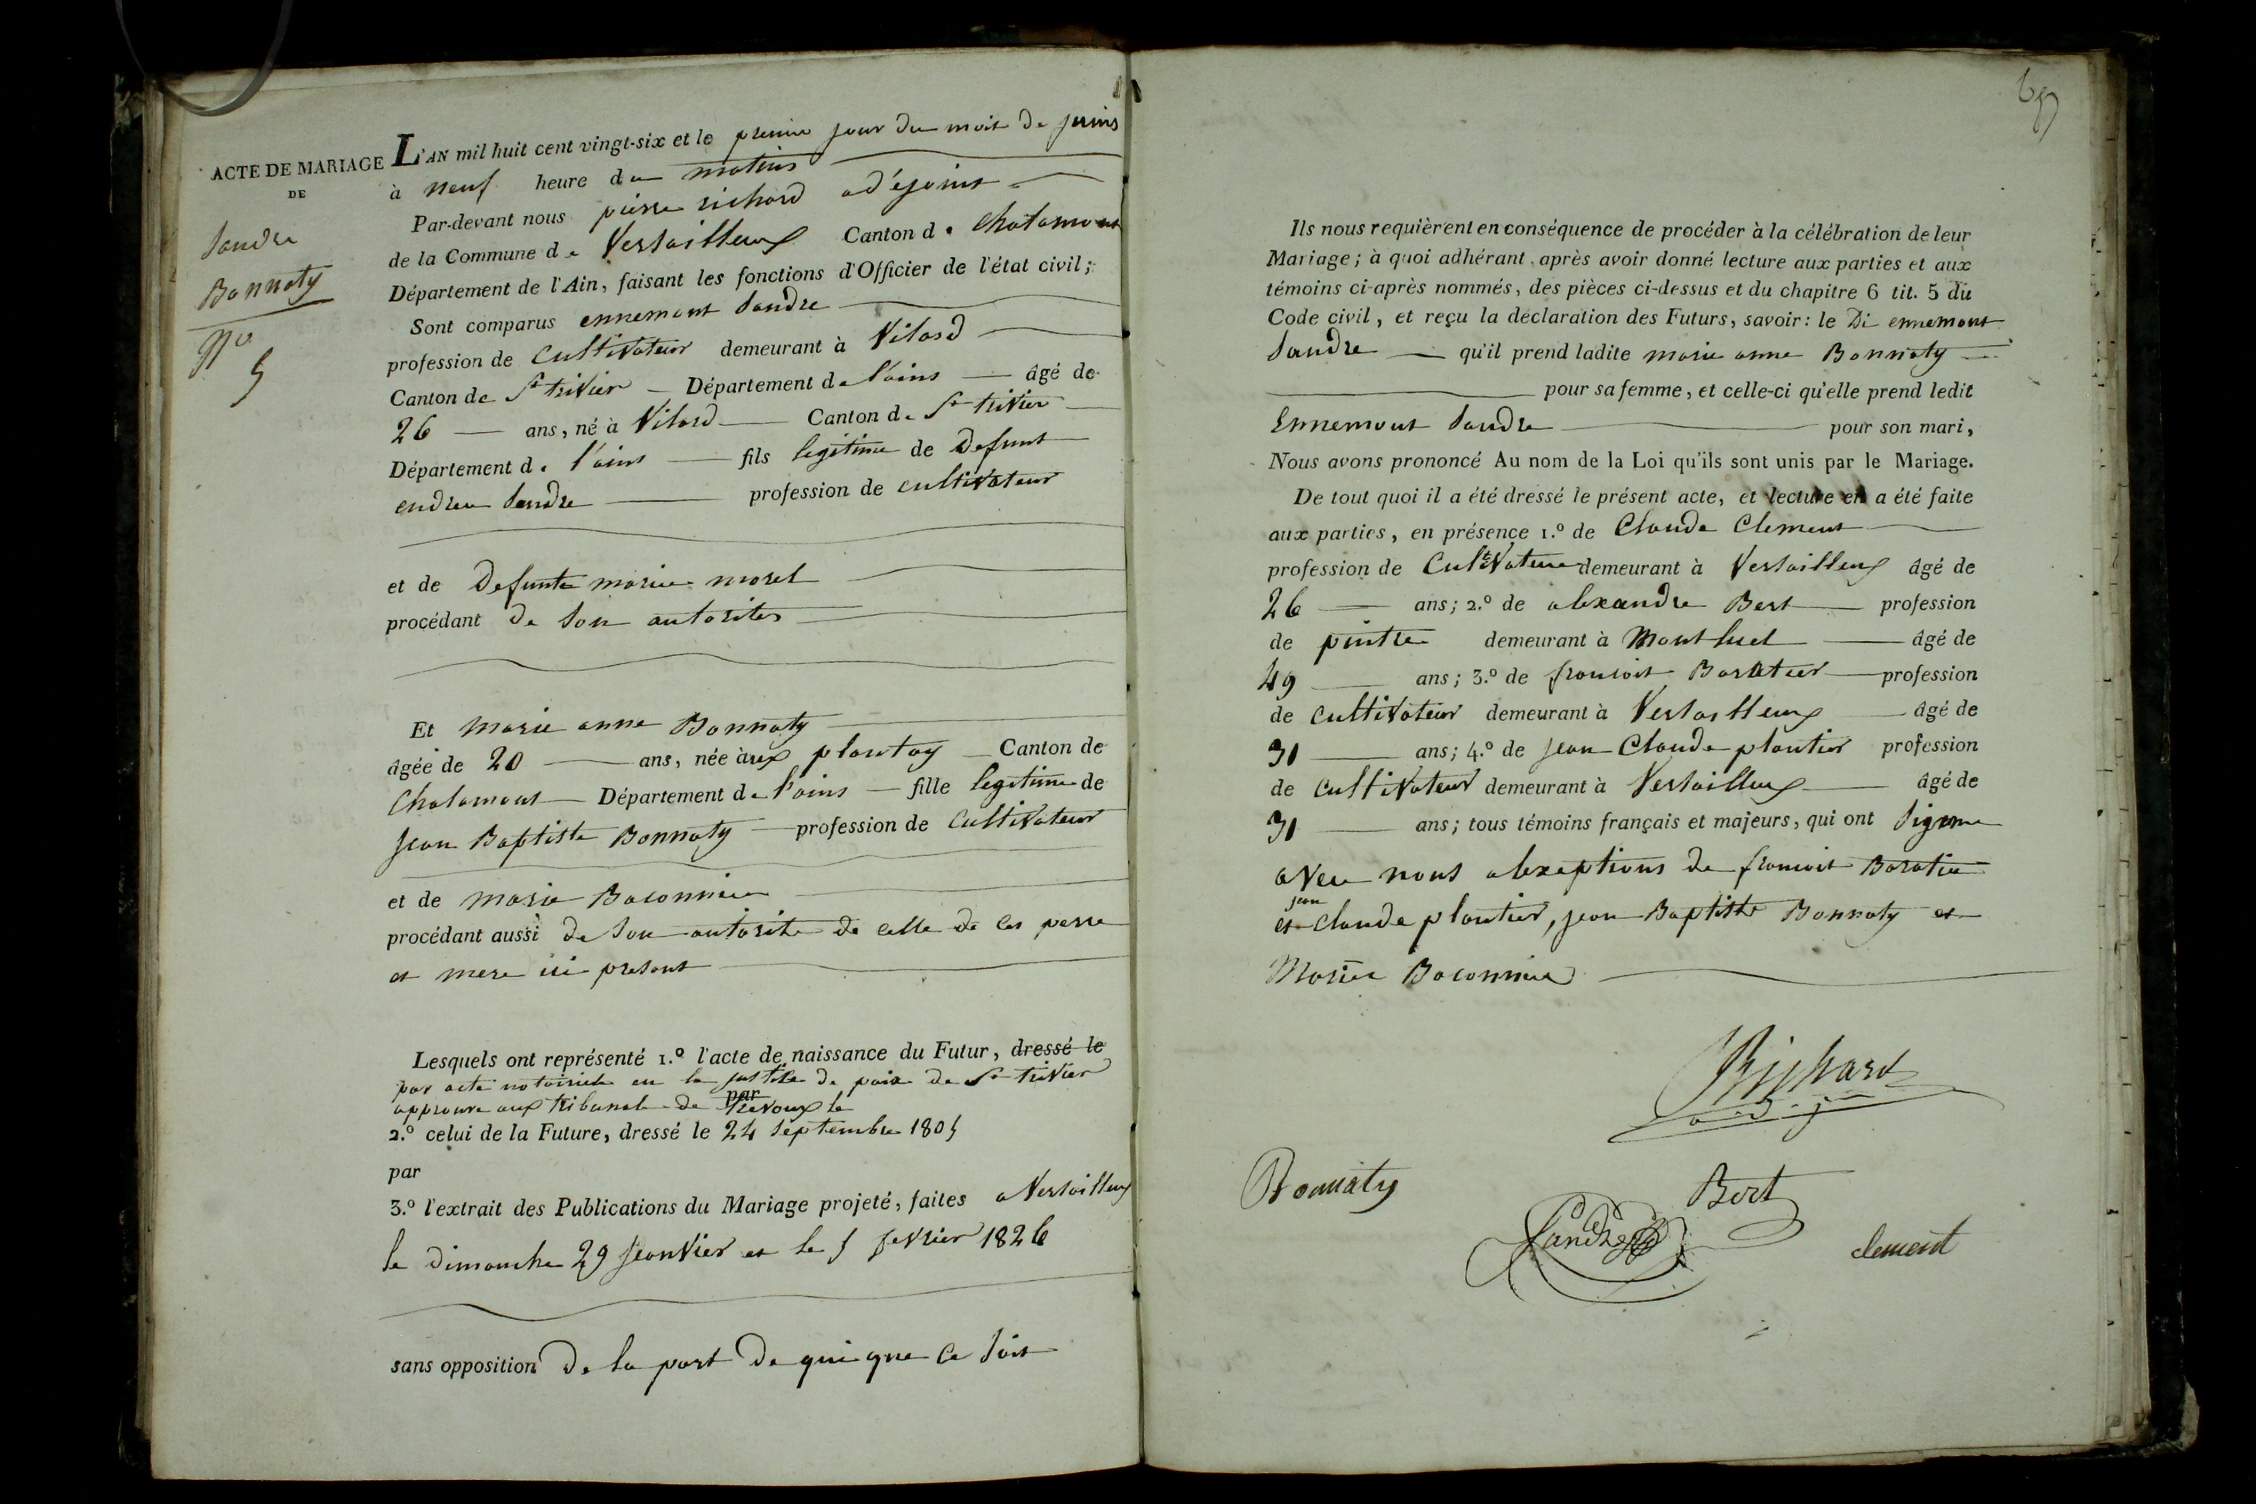 ACTE DE MARIAGE
DE
Sandre
Bonnaty
No
5
L'AN mil huit cent vingt-six et le premier jour du mois de juins
à neuf heure du matins
Par-devant nous pierre richard adéjoint
de la Commune de Versailleux Canton de Chalamont
Département de l'Ain, faisant les fonctions d'Officier de l'état civil;
Sont comparus ennemont Sandre
profession de Cultivateur demeurant à Vilard
Canton de St trivier Département de l'ains âgé de
26 ans, né à Vilard Canton de St trivier
Département de l'ains fils legitime de Defunt
endreu Sandre profession de cultivateur
et de Defunte marie morel
procédant de Son autorites
Et marie anne Bonnaty
âgée de 20 ans, née àux plantay Canton de
Chalamont Département de l'ains fille legitime de
Jean Baptiste Bonnaty profession de Cultivateur
et de marie Baconnier
procédant aussi de Son autorite de celle de ces perre
et mere ici present
Lesquels ont représenté 1.º l'acte de naissance du Futur, dressé le
par acte notoriete en la justice de paix de St trivier
approuve aux tribunal de par trevoux le
2.º celui de la Future, dressé le 24 Septembre 1805
par
3.º l'extrait des Publications du Mariage projeté, faites a Versailleux
le dimanche 29 Jeanvier et le 5 fevrier 1826
sans opposition de la part de qui que ce Soit
69
Ils nous requièrent en conséquence de procéder à la célébration de leur
Mariage; à quoi adhérant, après avoir donné lecture aux parties et aux
témoins ci-après nommés, des pièces ci-dessus et du chapitre 6 tit. 5 du
Code civil, et reçu la déclaration des Futurs, savoir: le Di ennemont
Sandre qu'il prend ladite marie anne Bonnaty
pour sa femme, et celle-ci qu'elle prend ledit
Ennemont Sandre pour son mari,
Nous avons prononcé Au nom de la Loi qu'ils sont unis par le Mariage.
De tout quoi il a été dressé le présent acte, et lecture en a été faite
aux parties, en présence 1.º de Claude Clement
profession de Cultivateur demeurant à Versailleux âgé de
26 ans; 2.º de alexandre Bert profession
de pintre demeurant à Montluel âgé de
49 ans; 3.º de francois Baratier profession
de cultivateur demeurant à Versailleux âgé de
31 ans; 4.º de Jean Claude plantier profession
de cultivateur demeurant à Versailleux âgé de
31 ans; tous témoins français et majeurs, qui ont Signne
avec nous alexeptions de francois Baratier
et jean claude plantier, jean Baptiste Bonnaty et
Marie Baconnier
Richard
adjoin
Bonnaty
Bert
Sandre
clement